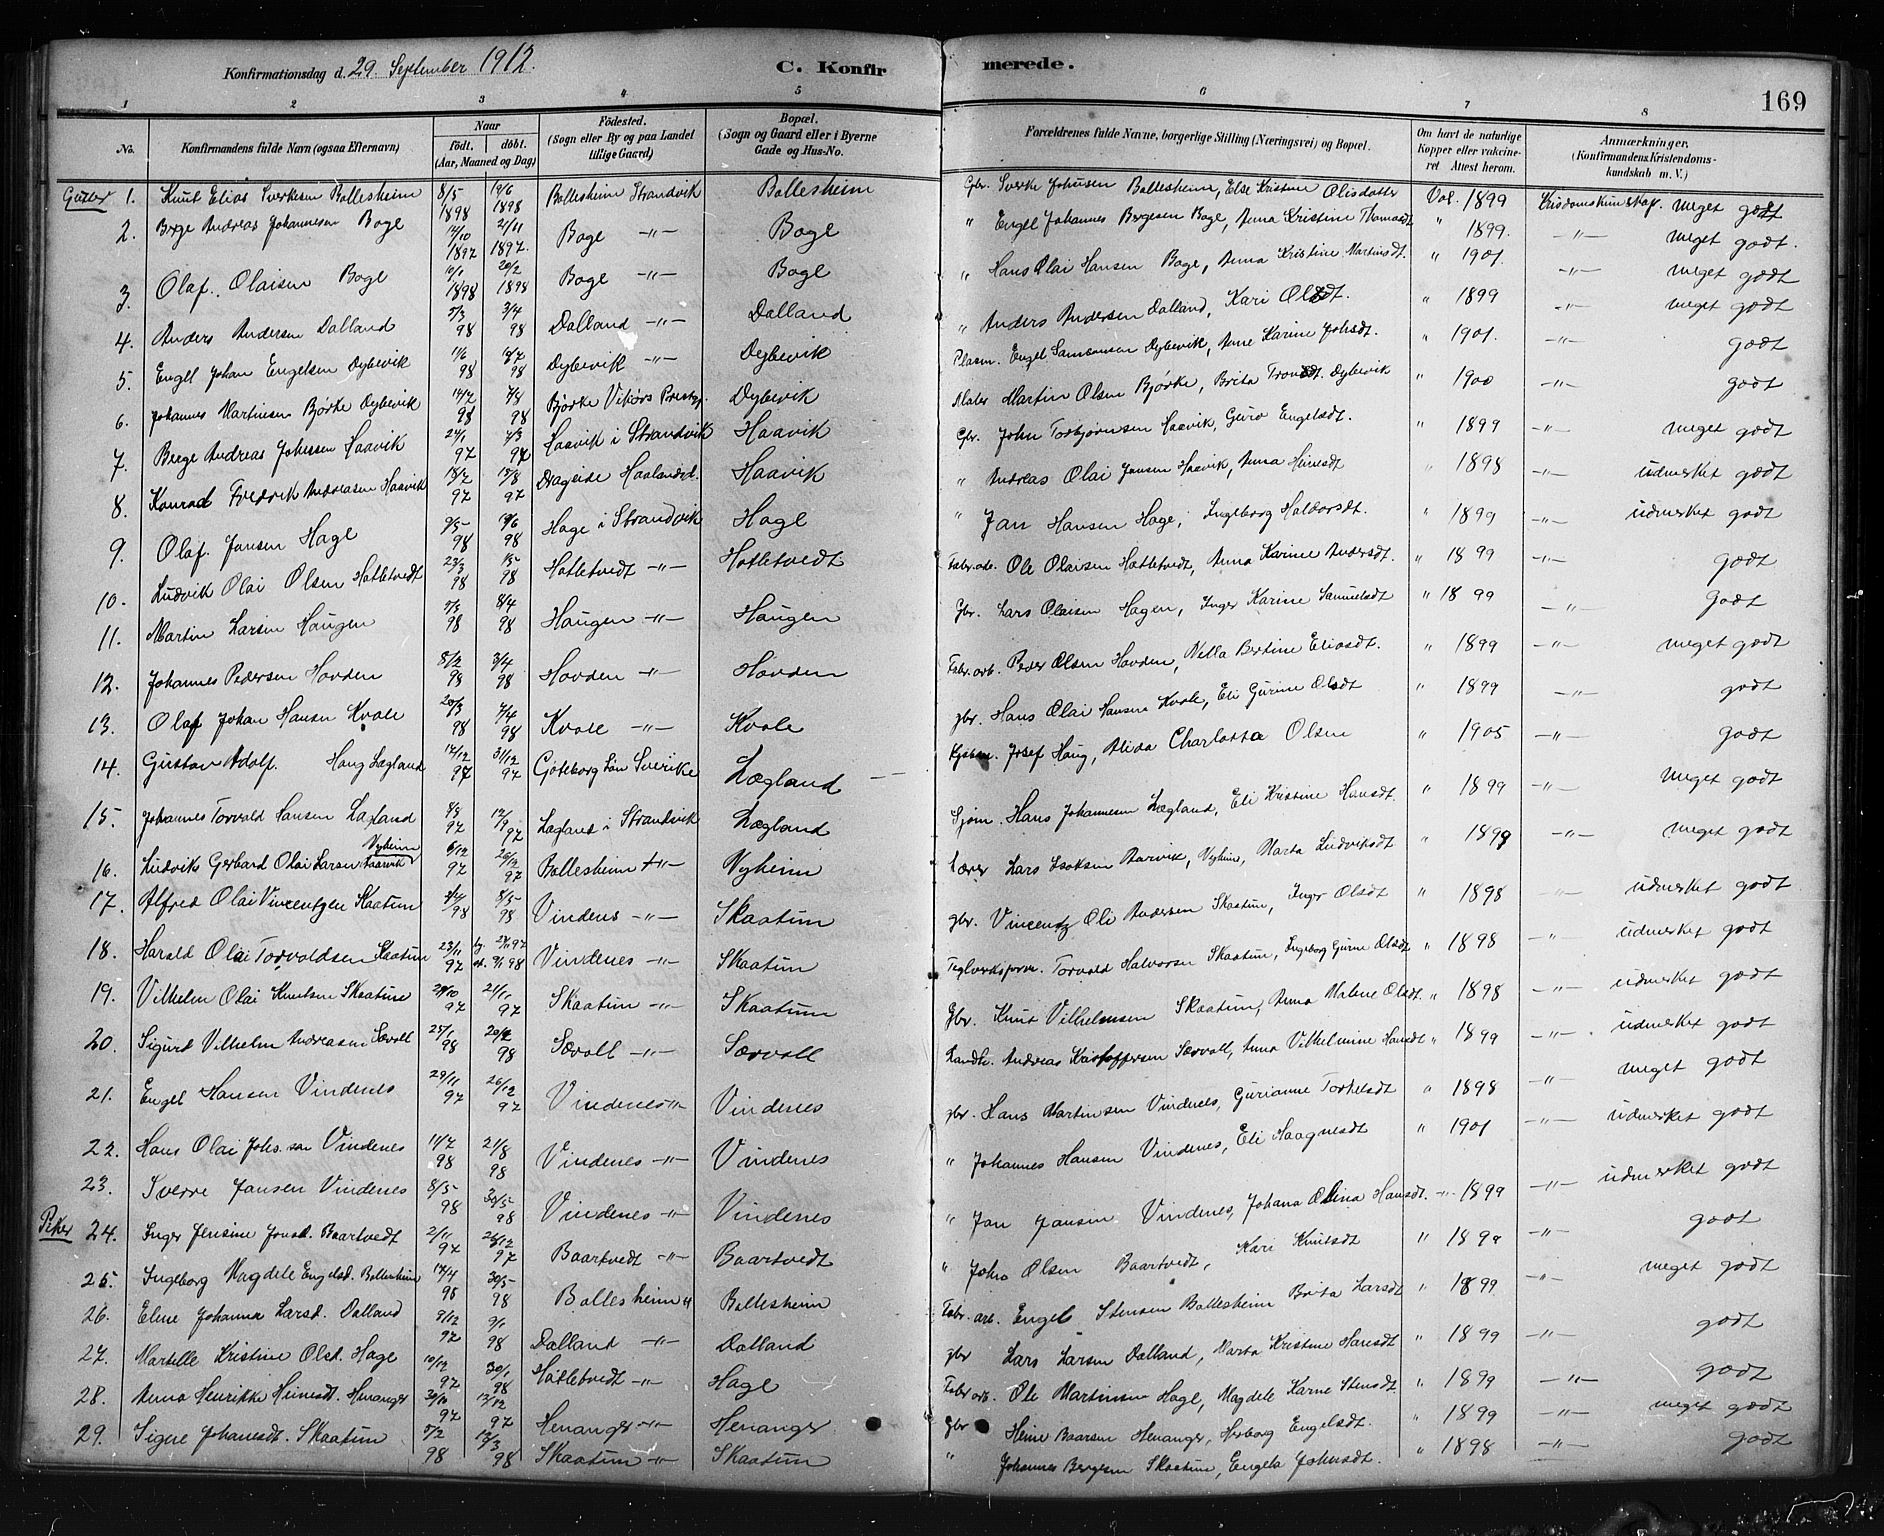 Konfirmationsdag d. 29. September 1912. C. Konfirmerede. 169
1 2 3 4 5 6 7 8
No. Konfirmandens fulde Navn (ogsaa Efternavn) Naar födt. döbt. (Aar, Maaned og Dag) Födested. (Sogn eller By og paa Landet tillige Gaard) Bopæl. (Sogn og Gaard eller i Byerne Gade og Hus-No. Forældrenes fulde Navne, borgerlige Stilling (Næringsvei) og Bopæl. Om havt de naturlige Kopper eller vakcineret Attest herom. Anmærkninger. (Konfirmandens Kristendomskundskab m. V.)
Gutter 1. Knut Elias Sverkesen Ballesheim 8/5 1898 19/6 1898 Ballesheim Strandvik Ballesheim Gbr. Sverke Johnsen Ballesheim, Else Kristine Olisdatter Vac. 1899 Krisdomskunskap. meget godt
2. Berge Andreas Johannesen Boge 12/10 1897 21/11 1897. Boge -"- Boge " Engel Johannes Bergesen Boge, Anna Kristine Thomasdt " 1899. -"- meget godt.
3. Olaf Olaisen Boge 10/1 1898 20/2 1898 Boge -"- Boge " Hans Olai Hansen Boge, Anna Kristine Martinsdt. " 1901 -"- meget godt
4. Anders Andersen Dalland 5/3 98 3/4 98 Dalland -"- Dalland " Anders Andersen Dalland, Kari Olsdt. " 1899 -"- meget godt
5. Engel Johan Engelsen Dybevik 11/6 98 98 Dybevik -"- Dybevik Plasm. Engel Samsonsen Dybevik, Anne Karine Johsdt. " 1901. -"- godt
6. Johannes Martinsen Bjørke Dybevik 14/2 98 7/8 98 Bjørke Vikørs Prestgj. Dybevik Maler Martin Olsen Bjørke, Brita Trondsdt. Dybevik " 1900 -"- godt
7. Berge Andreas Johnsen Haavik 24/1 97 7/3 97 Haavik i Strandvik Haavik Gbr. John Torbjørnsen Haavik, Guro Engelsdt. " 1899 -"- meget godt
8. Konrad Fredrik Andreasen Haavik 18/7 97 15/8 97 Drageide Haalandsd. Haavik " Andreas Olai Jansen Haavik, Anna Heinesdt " 1898 -"- udmerket godt
9. Olaf Jansen Hage 9/5 98 19/6 98 Hage i Strandvik Hage " Jan Hansen Hage, Ingeborg Haldorsdt. " 1899 -"- udmerket godt
10. Ludvik Olai Olsen Hatletvedt 23/3 98 1/5 98 Hatletvedt -"- Hatletvedt Fabr.arb. Ole Olaisen Hatletvedt, Anna Karine Andersdt " 1899 -"- godt
11. Martin Larsen Haugen 5/3 98 8/4 98 Haugen -"- Haugen Gbr. Lars Olaisen Hagen, Inger Karine Samuelsdt " 1899 -"- Godt
12. Johannes Pedersen Hovden 8/2 98 3/4 98 Hovden -"- Hovden Fabr. arb. Peder Olsen Hovden, Nella Bertine Eliasdt. " 1899 -"- meget godt
13. Olaf Johan Hansen Kvale 20/3 98 7/4 98 Kvale -"- Kvale gbr. Hans Olai Hansen Kvale, Eli Gurine Olsdt " 1899 -"- godt
14. Gustav Adolf. Haug Lægland 12/12 97 31/12 97 Göteborg Län Sverike Lægland Josef Haug, Alida Charlotta Olsen " 1905 -"- godt
15. Johannes Torvald Hansen Lægland 8/8 97 12/9 97 Lægland i Strandvik Lægland Sjøm. Hans Johannesen Lægland, Eli Kristine Hansdt. " 1899 -"- meget godt
16. Ludviks Gerhard Olai Larsen Aarvik Vyheim 6/12 97 26/12 97 Ballesheim -"- Vyheim Lærer Lars Isaksen Aarvik, Vyheim, Marta Ludviksdt " 1899 -"- meget godt
17. Alfred Olai Vincentzen Skaatun 3/4 98 8/5 98 Vindenes -"- Skaatun gbr. Vincentz Oli Andersen Skaatun, Inger Olsdt " 1898 -"- udmerket godt
18. Harald Olai Torvaldsen Skaatun 23/11 97 Vindenes -"- Skaatun Teglverksforv. Torvald Halvorsen Skaatun, Ingeborg Gurine Olsdt " 1898 -"- udmerket godt
19. Vilhelm Olai Knutsen Skaatun 24/10 97 21/11 97 Skaatun -"- Skaatun Gbr. Knut Vilhelmsen Skaatun, Anna Malene Olsdt. " 1898 -"- udmerket godt
20. Sigurd Vilhelm Andreasen Sævoll 25/1 98 20/2 98 Sævoll -"- Sævoll Landh. Andreas Kristoffersen Sævoll, Anna Vilhelmine Hansdt " 1899 -"- udmerket godt
21. Engel Hansen Vindenes 29/11 97 26/12 97 Vindenes -"- Vindenes gbr. Hans Martinsen Vindenes, Gurianne Torkelsdt " 1898 -"- meget godt
22. Hans Olai Johs.sen Vindenes 11/7 98 21/8 98 Vindenes -"- Vindenes " Johannes Hansen Vindenes, Eli Haagnesdt " 1901 -"- udmerket godt
23. Sverre Jansen Vindenes 8/5 98 30/5 98 Vindenes -"- Vindenes " Jan Jansen Vindenes, Johana Olina Hansdt. -"- 1899 -"- udmerket godt
Piker 24. Inger Jensine Jonsd. Baartvedt 2/11 97 26/12 97 Baartvedt -"- Baartvedt " John Olsen Baartvedt, Kari Knutsdt " 1899 -"- godt
25. Ingeborg Magdele Engelsd. Ballesheim 14/4 98 30/5 98 Ballesheim " Ballesheim Fabr. arb. Engel Stensen Ballesheim Brita Larsdt " 1899 -"- meget godt
26. Eline Johanna Larsd. Dalland 9/12 97 9/1 98 Dalland -"- Dalland gbr Lars Larsen Dalland, Marta Kristine Hansdt " 1899 -"- godt
27. Martelle Kristine Olsd. Hage 10/12 97 30/1 98 Hatletvedt -"- Hage Fabr. arb. Ole Martinsen Hage, Magdele Karne Stensdt " 1899 -"- godt
28. Anna Henrikke Heinesdt. Henanger 3/10 97 12/12 97 Henanger -"- Henanger Gbr Heine Baarsen Henanger, Herborg Engelsdt. " 1899 -"- meget godt
29. Signe Johanesdt. Skaatun 5/2 98 13/3 98 Skaatun -"- Skaatun " Johannes Bergesen Skaatun, Engela Johnsdt. " 1898 -"- godt